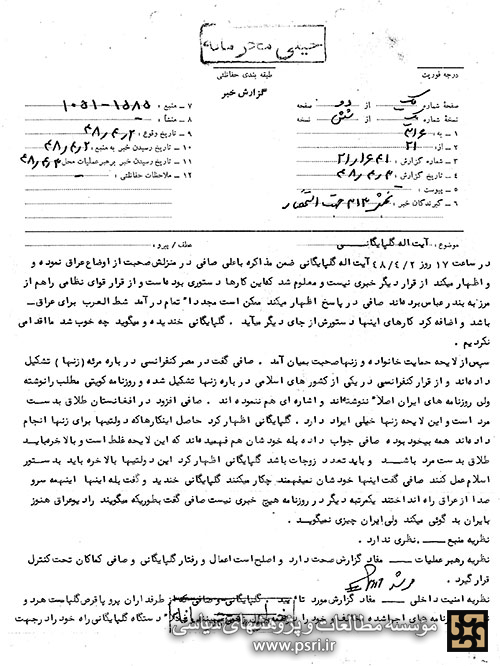 خیلی محرمانه
درجه فوریت
طبقه بندی حفاظتی
گزارش خبر
صفحه شماره یک از دو صفحه
نسخه شماره از شش نسخه
۱ - به : ۳۱۶
۲ - از : ۲۱
۳ - شماره گزارش : ۲۱/۱۶۴۱
۴ - تاریخ گزارش :
۵ - پیوست :
۶ - گیرندگان خبر :
۷ - منبع : ۱۵۸۵-۱۰۵۱
۸ - منشأ :
۹ - تاریخ وقوع : ۴۸/۴/۲
۱۰ - تاریخ رسیدن خبر به منبع : ۴۸/۴/۲
۱۱ - تاریخ رسیدن خبر برهبر عملیات محل :
۱۲ - ملاحظات حفاظتی :
موضوع : آیت اله گلپایگانی عطف / پیرو :
در ساعت ۱۷ روز ۴۸/۴/۲ آیت اله گلپایگانی ضمن مذاکره باعلی صافی در منزلش صحبت از اوضاع عراق نموده و
و اظهار میکند از قرار دیگر خبری نیست و معلوم شد که این کارها دستوری بوده است و از قرار قوای نظامی راهم از
مرز به بندر عباس برده اند صافی در پاسخ اظهار میکند ممکن است مجددا" تمام در آمد شط العرب برای عراق -
باشد و اضافه کرد کارهای اینها دستورش از جای دیگر میآید . گلپایگانی خندیده و میگوید چه خوب شد ما اقدامی
نکردیم .
سپس از لایحه حمایت خانواده و زنها صحبت بمیان آمد . صافی گفت در مصر کنفرانسی در باره مرئه (زنها) تشکیل
داده اند و از قرار کنفرانسی در یکی از کشور های اسلامی در باره زنها تشکیل شده و روزنامه کویتی مطلب را نوشته
ولی روزنامه های ایران اصلا" ننوشته اند و اشاره ای هم ننموده اند . صافی افزود در افغانستان طلاق بد ست
مرد است و این لایحه زنها خیلی ایراد دارد . گلپایگانی اظهار کرد حاصل اینکارها که دولتیها برای زنها انجام
داده اند همه بیخود بوده صافی جواب داد بله خود شان هم فهمیده اند که این لایحه غلط است و بالاخره باید
طلاق بد ست مرد باشد و باید تعدد زوجات باشد گلپایگانی اظهار کرد این دولتیها بالاخره باید بد ستور
اسلام عمل کنند صافی گفت اینها خودشان نمیفهمند چکار میکنند گلپایگانی خندید و گفت بله اینها اینهمه سرو
صدا از عراق راه انداختند یکمرتبه دیگر در روزنامه هیچ خبری نیست صافی گفت بطوریکه میگویند رادیو عراق هنوز
بایران بد گوئی میکند ولی ایران چیزی نمیگوید .
نظریه منبع - نظری ندارد .
نظریه رهبر عملیات - مفاد گزارش صحت دارد و اصلح است اعمال و رفتار گلپایگانی و صافی کماکان تحت کنترل
قرار گیرد .
نظریه امنیت داخلی - مفاد گزارش مورد تأیید . گلپایگانی و صافی که از طرفداران پرو پاقرص
خیلی محرمانه
دستگاه گلپایگانی راه خود را در جهت
مؤسسه مطالعات و پژوهشهای سیاسی
www.psri.ir